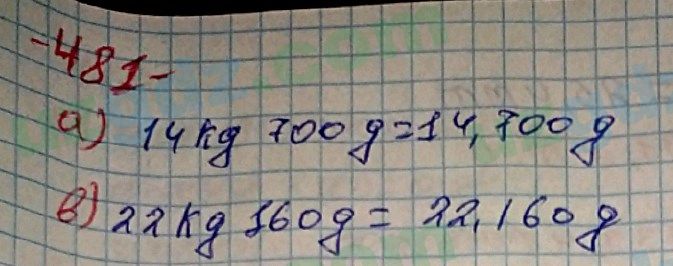 -481-
a) 14kg 700g=14,700g
в) 22kg 160g= 22,160g